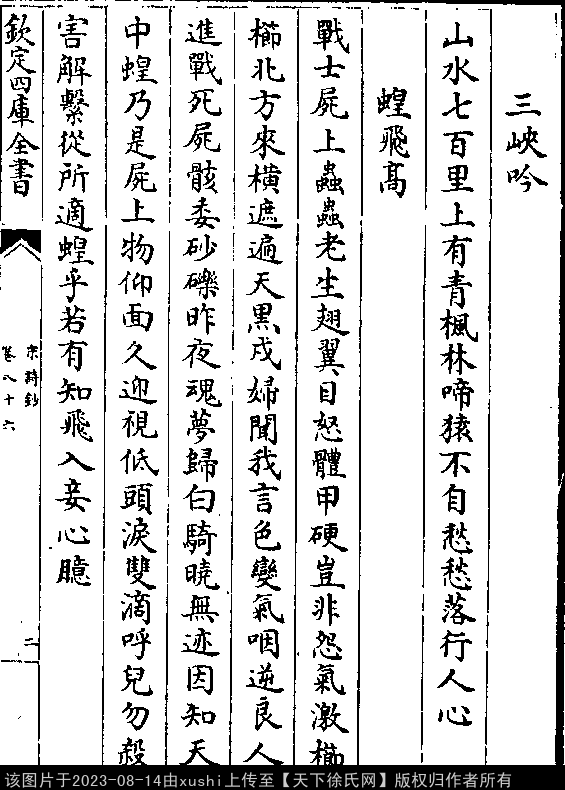 三峽吟
山水七百里上有青楓林啼猿不自愁愁落行人心
蝗飛高
戰士屍上蟲蟲老生翅翼目怒體甲硬豈非怨氣激櫛
櫛北方來橫遮遍天黑戍婦聞我言色變氣咽逆良人
進戰死屍骸委砂礫昨夜魂夢歸白騎曉無迹因知天
中蝗乃是屍上物仰面久迎視低頭淚雙滴呼兒勿殺
害解繫從所適蝗乎若有知飛入妾心臆
欽定四庫全書
宋詩鈔
卷八十六
二
该图片于2023-08-14由xushi上传至【天下徐氏网】版权归作者所有